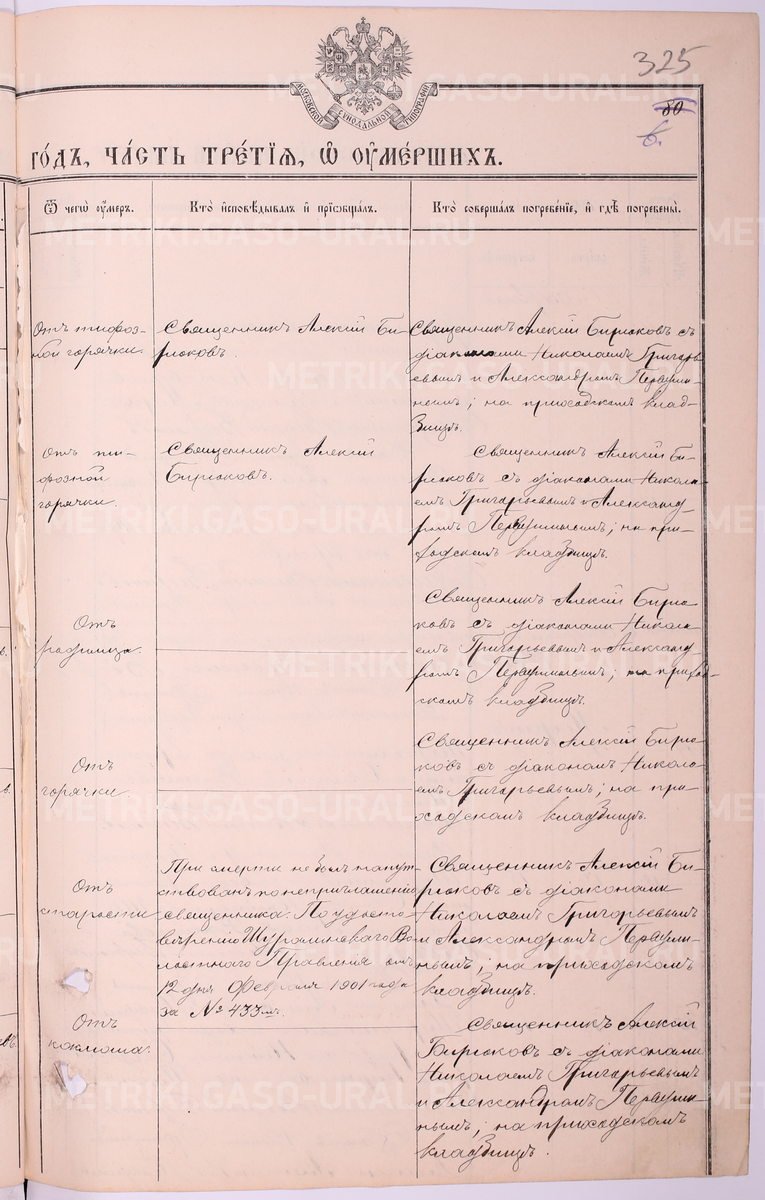 325
МОСКОВСКОЙ СѴНОДАЛЬНОЙ ТИПОГРАФІИ
80
в.
го́дъ, ча́сть тре́тїѧ, ѡ҆ ᲂу҆ме́ршихъ.
Ѿ чегѡ̀ ᲂу҆́меръ.
Кто̀ и҆сповѣ́дывалъ и҆ прїѡбща́лъ.
Кто̀ соверша́лъ погребе́нїе, и҆ гдѣ̀ погребены̀.
Отъ тифоз-
ной горячки.
Священникъ Алексій Би-
рюковъ.
Священникъ Алексій Бирюковъ съ
діаконами Николаемъ Григорь-
евымъ и Александромъ Первуши-
нымъ; на приходскомъ клад-
бищѣ.
Отъ ти-
фозной
горячки.
Священникъ Алексій
Бирюковъ.
Священникъ Алексій Би-
рюковъ съ діаконами Никола-
емъ Григорьевымъ и Александ-
ромъ Первушинымъ; на при-
ходскомъ кладбищѣ.
Отъ
родимца.
Священникъ Алексій Бирю-
ковъ съ діаконами Никола-
емъ Григорьевымъ и Александ-
ромъ Первушинымъ; на приход-
скомъ кладбищѣ.
Отъ
горячки.
Священникъ Алексій Бирю-
ковъ съ діакономъ Никола-
емъ Григорьевымъ; на при-
ходскомъ кладбищѣ.
Отъ
старости
При смерти не былъ напут-
ствованъ по неприглашенію
священника. По удосто-
вѣренію Шуралинскаго Во-
лостнаго Правленія отъ
12 дня Февраля 1901 года
за № 433мъ.
Священникъ Алексій Би-
рюковъ съ діаконами
Николаемъ Григорьевымъ
и Александромъ Первуши-
нымъ; на приходскомъ
кладбищѣ.
Отъ
коклюша.
Священникъ Алексій
Бирюковъ съ діаконами
Николаемъ Григорьевымъ
и Александромъ Первуши-
нымъ; на приходскомъ
кладбищѣ.
METRIKI.GASO-URAL.RU